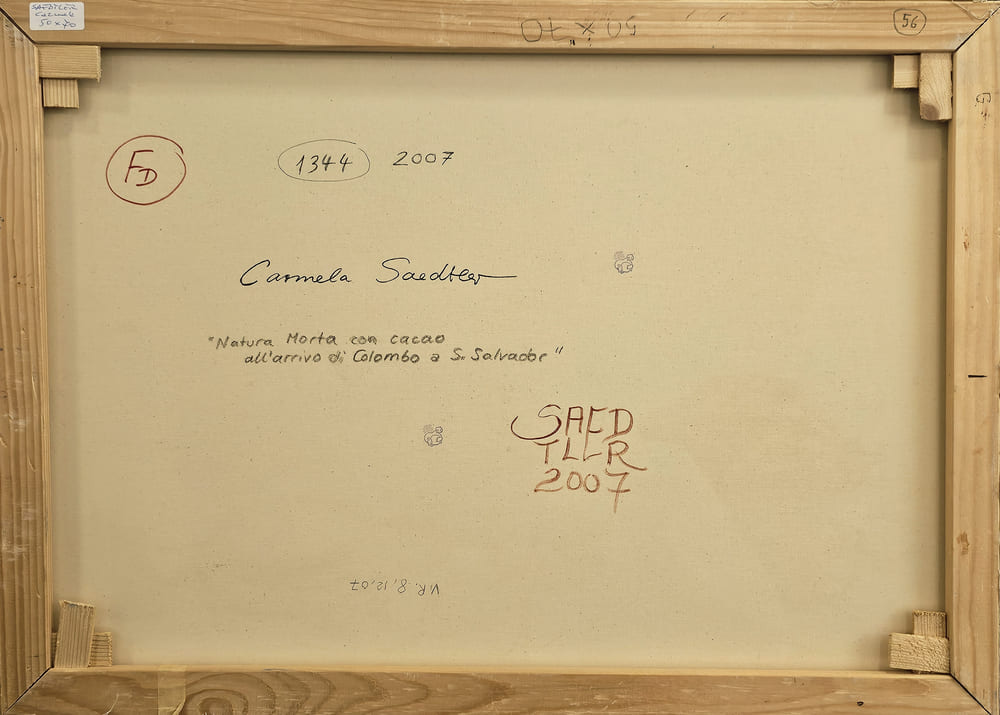 SAEDTLER
Carmela
50 x 70
50 x 70
56
FD
1344 2007
Carmela Saedtler
"Natura Morta con cacao
all'arrivo di Colombo a S. Salvador"
SAED
TLER
2007
V.R. 8,12,07